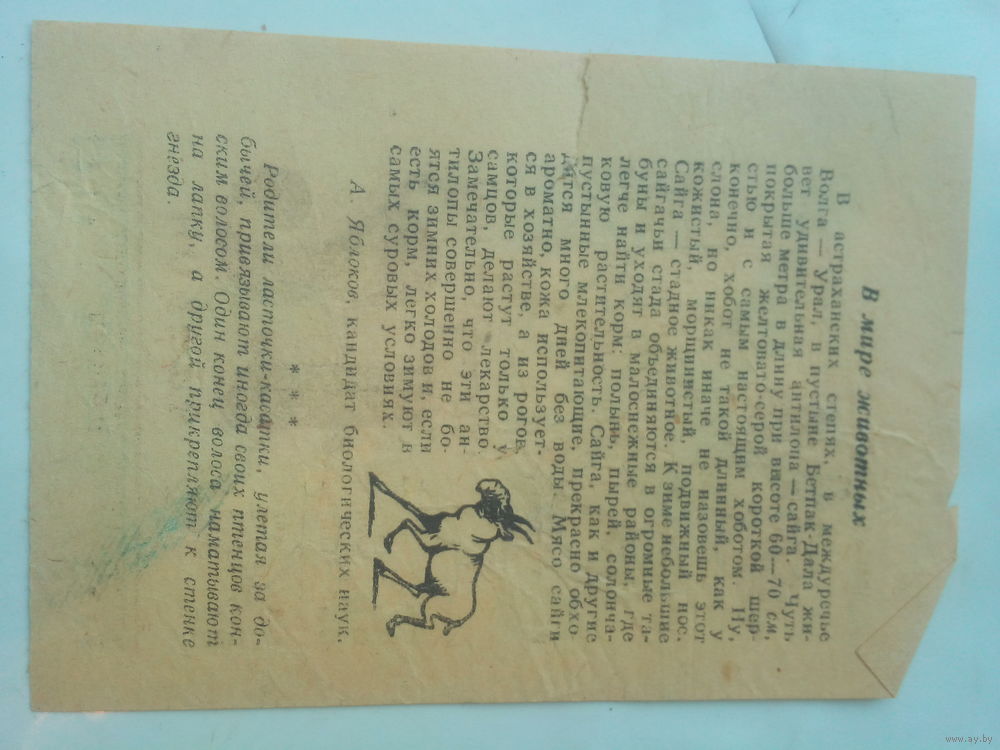 В мире животных
В астраханских степях, в междуречье
Волга — Урал, в пустыне Бетпак-Дала жи-
вет удивительная антилопа — сайга. Чуть
больше метра в длину при высоте 60—70 см,
покрытая желтовато-серой короткой шер-
стью и с самым настоящим хоботом. Ну,
конечно, хобот не такой длинный, как у
слона, но никак иначе не назовешь этот
кожистый, морщинистый, подвижный нос.
Сайга — стадное животное. К зиме небольшие
сайгачьи стада объединяются в огромные та-
буны и уходят в малоснежные районы, где
легче найти корм: полынь, пырей, солонча-
ковую растительность. Сайга, как и другие
пустынные млекопитающие, прекрасно обхо-
дится много дней без воды. Мясо сайги
ароматно, кожа использует-
ся в хозяйстве, а из рогов,
которые растут только у
самцов, делают лекарство.
Замечательно, что эти ан-
тилопы совершенно не бо-
ятся зимних холодов и, если
есть корм, легко зимуют в
самых суровых условиях.
А. Яблоков, кандидат биологических наук.
* * *
Родители ласточки-касатки, улетая за до-
бычей, привязывают иногда своих птенцов кон-
ским волосом. Один конец волоса наматывают
на лапку, а другой прикрепляют к стенке
гнёзда.
www.ay.by